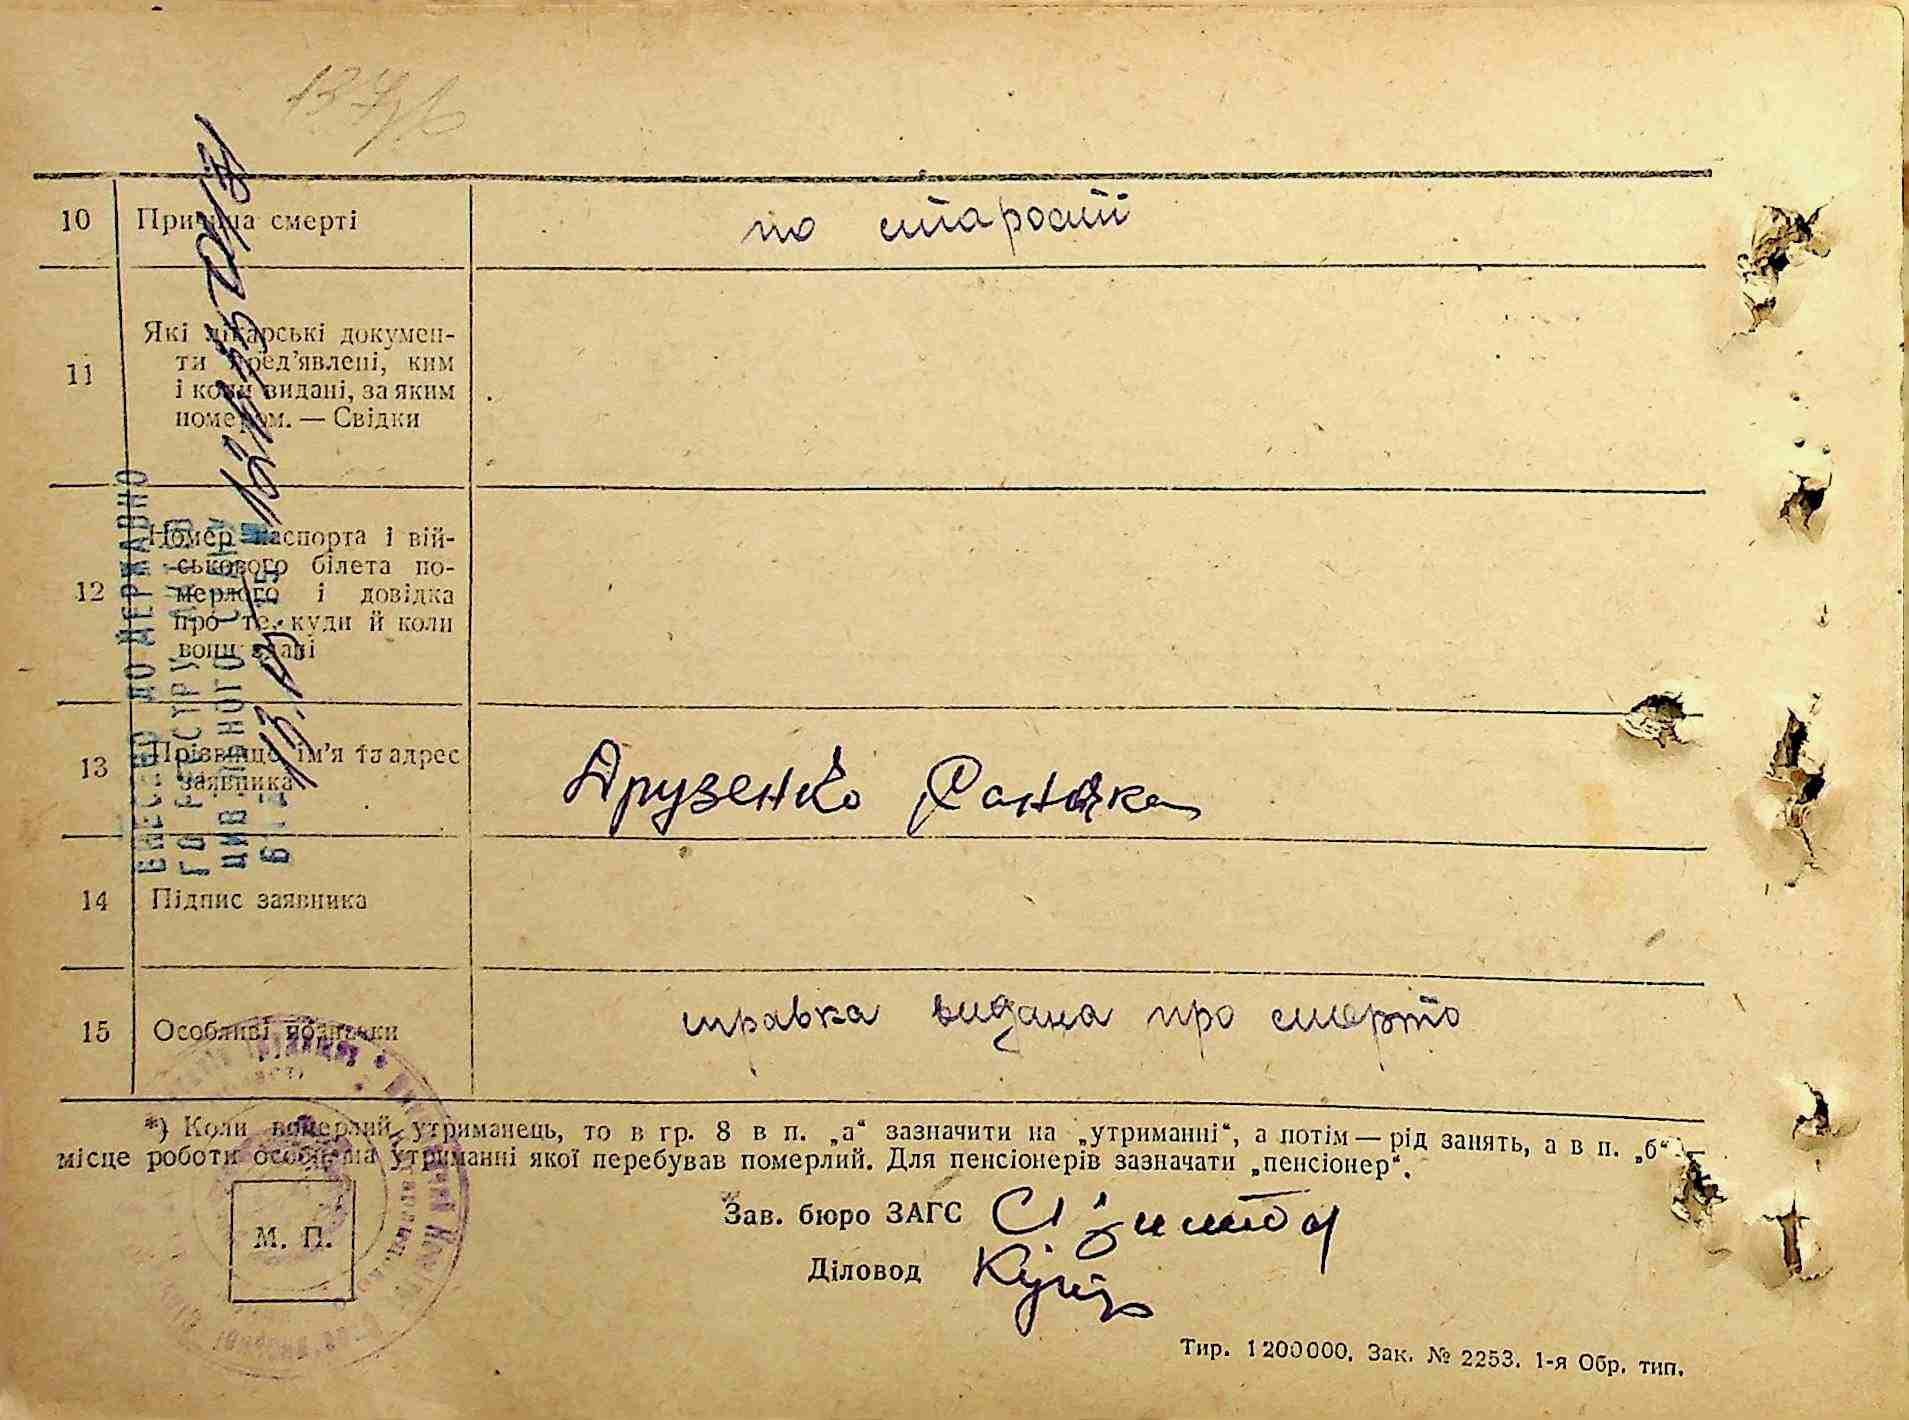 10 Причина смерті по старості
11 Які лікарські докумен-
ти пред'явлені, ким
і коли видані, за яким
номером. — Свідки
12 Номер паспорта і вій-
ськового білета по-
мерлого і довідка
про те, куди й коли
вони здані
13 Прізвище, ім'я та адрес
заявника
Друзенко
14 Підпис заявника
15 Особливі помітки справка видана про смерть
*) Коли померлий утриманець, то в гр. 8 в п. „а“ зазначити на „утриманні“, а потім — рід занять, а в п. „б“ —
місце роботи особи, на утриманні якої перебував померлий. Для пенсіонерів зазначати „пенсіонер“.
Зав. бюро ЗАГС
Діловод
М. П.
Тир. 1200000. Зак. № 2253. 1-я Обр. тип.
ВНЕСЕНО ДО ДЕРЖАВНО
ГО РЕЄСТРУ АКТІВ
ЦИВІЛЬНОГО СТАНУ